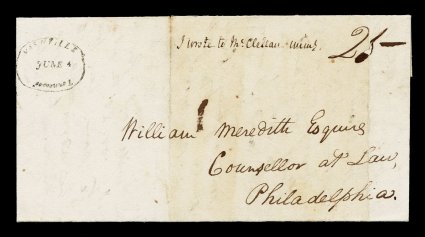 NASHVILLE
JUNE 4
I wrote to Mr. Clellan
25
William Meredith Esquire
Counsellor at Law,
Philadelphia.